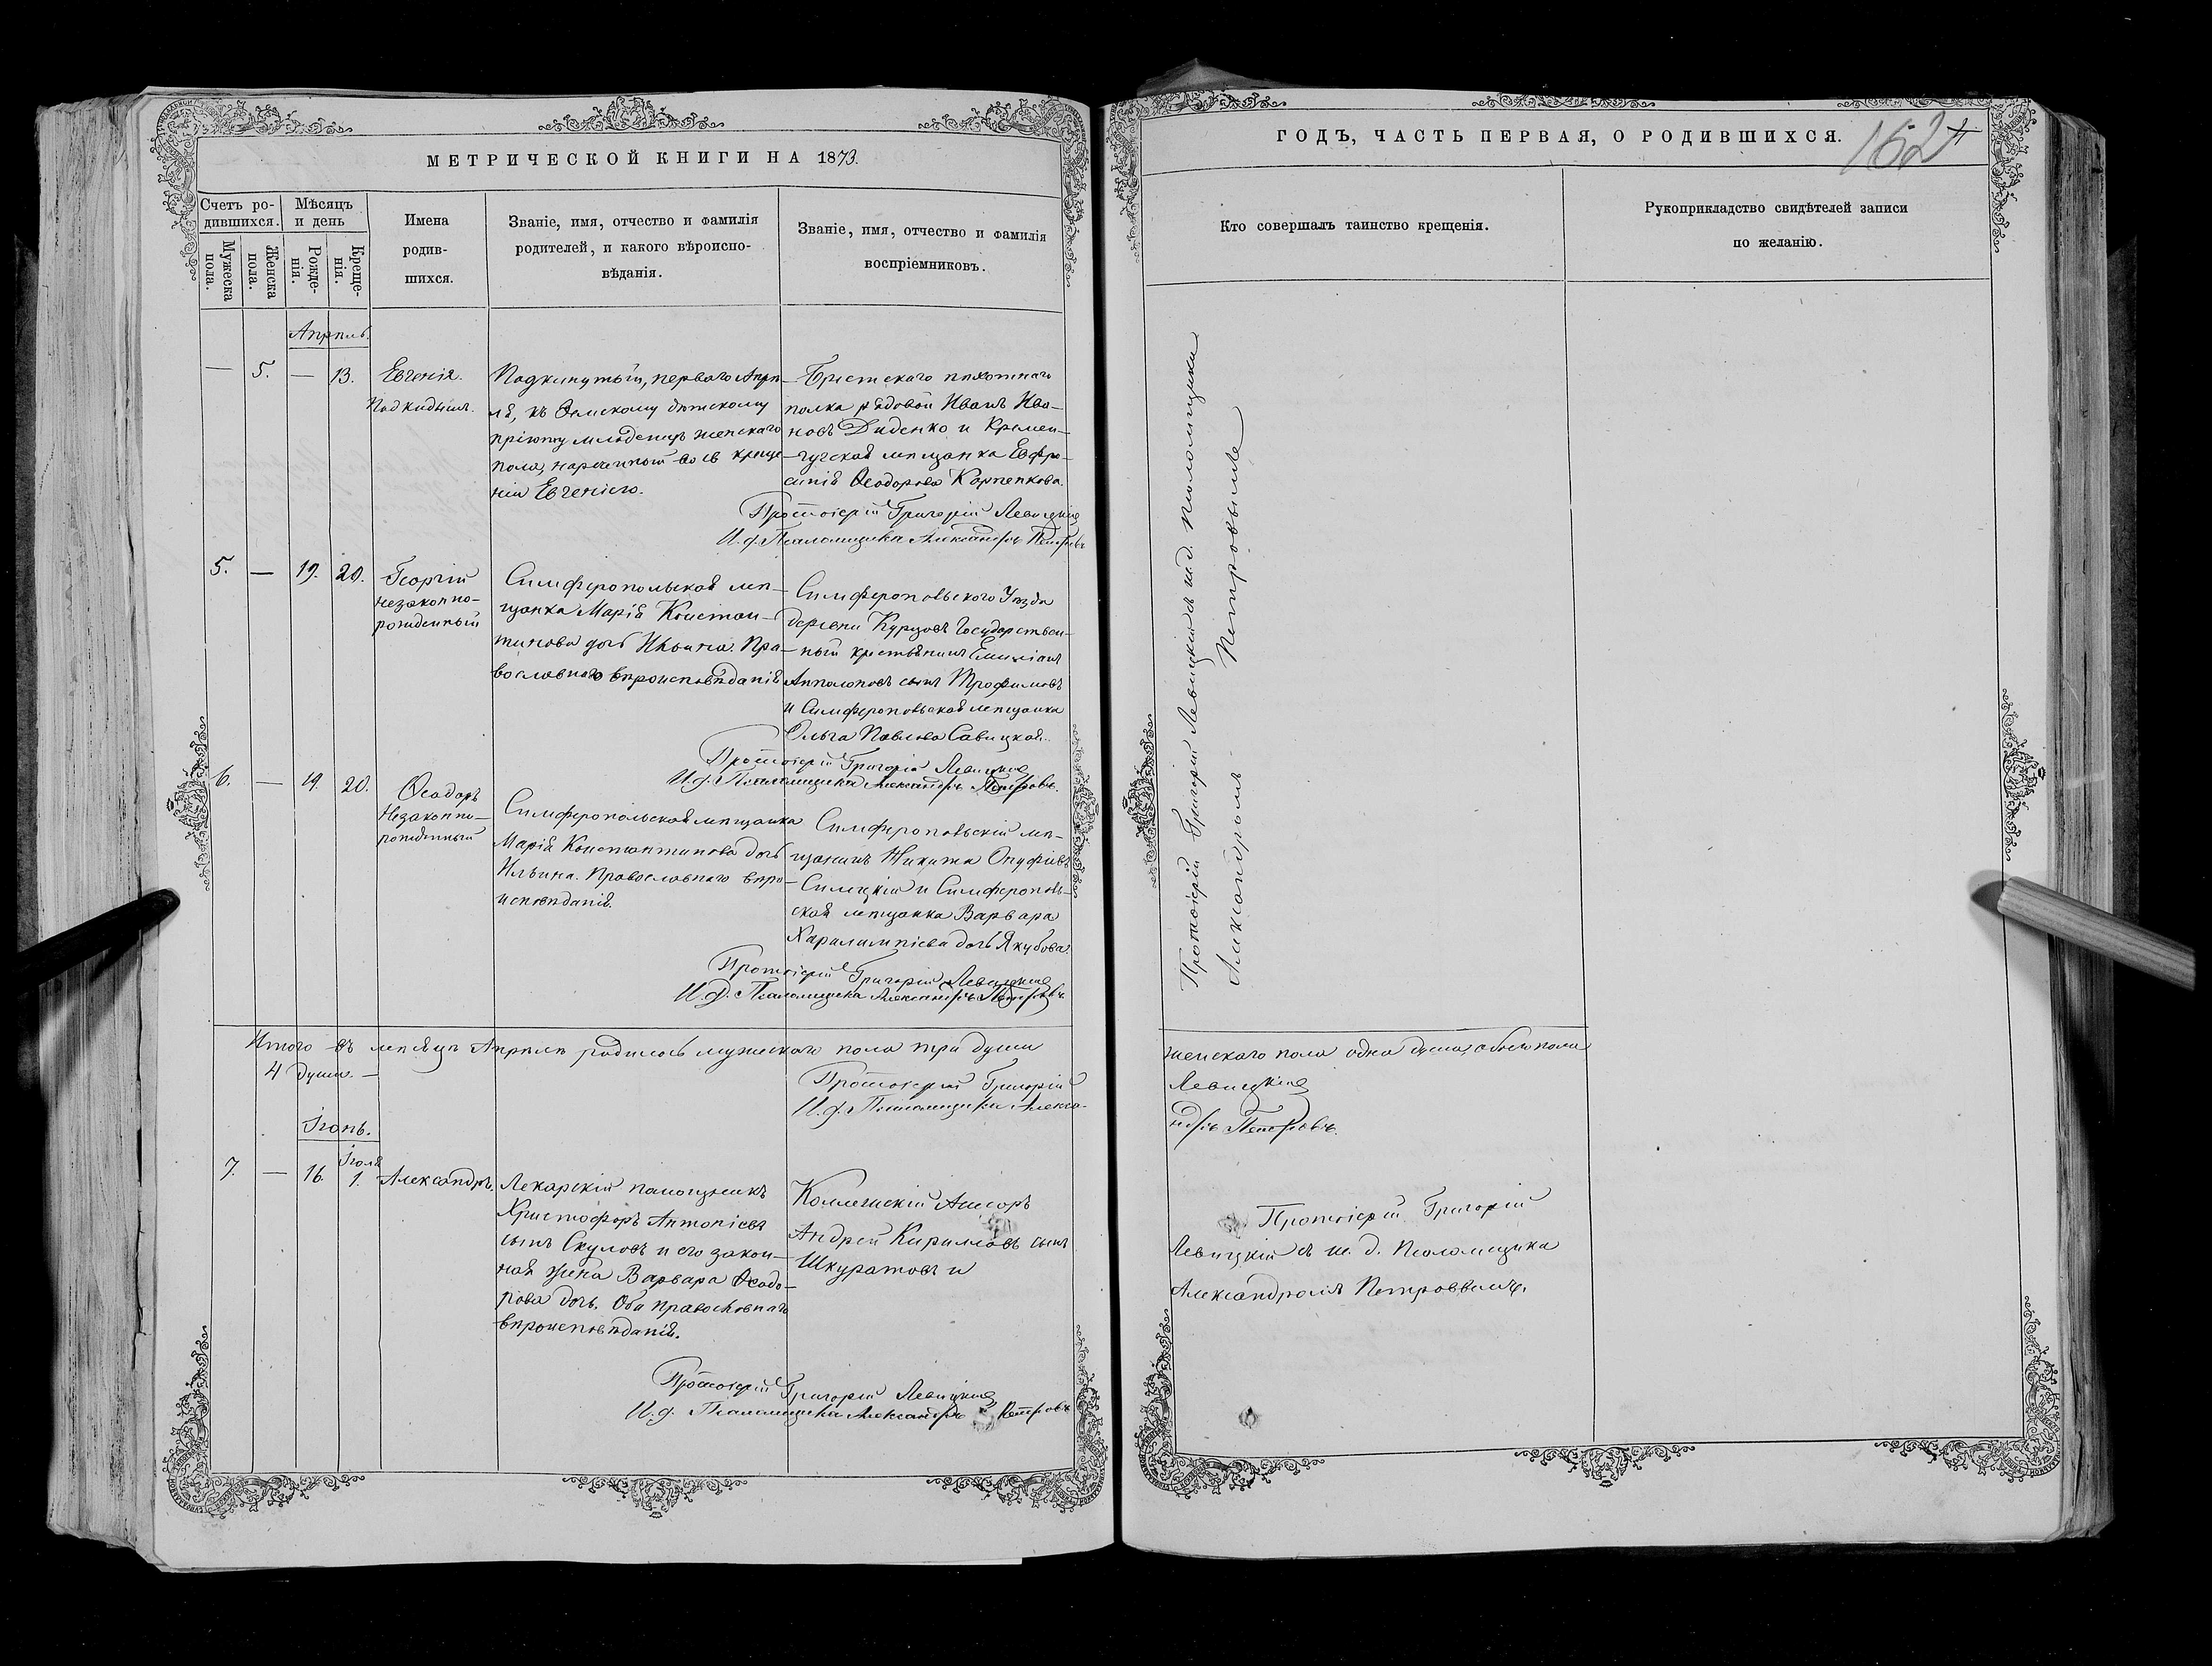 МЕТРИЧЕСКОЙ КНИГИ НА 1873.
Счетъ ро-
дившихся.
Мужеска
пола.
Женска
пола.
Мѣсяцъ
и день
Рожде-
нія.
Креще-
нія.
Имена
родив-
шихся.
Званіе, имя, отчество и фамилія
родителей, и какого вѣроиспо-
вѣданія.
Званіе, имя, отчество и фамилія
воспріемниковъ.
Апрѣль.
— 5. — 13.
Евгенія.
Подкидышъ.
Подкинутый, перваго Апрѣ-
ля, къ дѣтскому
пріюту младенецъ женскаго
пола, нареченный во св. креще
ніи Евгеніею.
Брестскаго пѣхотнаго
полка рядовой Иванъ Ива-
новъ Диденко и Кремен-
чугская мѣщанка Евфро-
синія Ѳеодорова Корпенкова.
Протоіерей Григорій Левицкій
И.д. Псаломщика Александръ Петровъ
5. — 19. 20.
Георгій
незаконно-
рожденный
Симферопольская мѣ-
щанка Марія Констан-
тинова дочь Ильина. Пра-
вославнаго вѣроисповѣданія
Симферопольскаго Уѣзда
деревни Курцовъ Государствен-
ный крестьянинъ Емиліанъ
Апполоновъ сынъ Трофимовъ
и Симферопольская мѣщанка
Ольга Павлова Савицкая.
Протоіерей Григорій Левицкій
И.д. Псаломщика Александръ Петровъ.
6. — 19. 20.
Ѳеодоръ
Незаконно-
рожденный
Симферопольская мѣщанка
Марія Константинова дочь
Ильина. Православнаго вѣро-
исповѣданія.
Симферопольскій мѣ-
щанинъ Никита Онуфріевъ
и Симферополь-
ская мѣщанка Варвара
Харалампіева дочь Якубова.
Протоіерей Григорій Левицкій
И.д. Псаломщика Александръ Петровъ.
Итого въ мѣсяцѣ Апрѣлѣ родилось мужескаго пола три души
4 души. —
Протоіерей Григорій
И.д. Псаломщика Алекса-
Іюнь.
7. — 16. Іюля 1.
Александръ.
Лекарскій помощникъ
Христофоръ Антоніевъ
сынъ Скуловъ и его закон-
ная жена Варвара Ѳеодо-
рова дочь. Оба православнаго
вѣроисповѣданія.
Коллежскій Ассесоръ
Андрей Кирилловъ сынъ
Шкуратовъ и
Протоіерей Григорій Левицкій
И.д. Псаломщика Александръ Петровъ
ГОДЪ, ЧАСТЬ ПЕРВАЯ, О РОДИВШИХСЯ.
162
Кто совершалъ таинство крещенія.
Рукоприкладство свидѣтелей записи
по желанію.
Протоіерей Григорій Левицкій съ и.д. псаломщика
Александромъ Петровымъ
женскаго пола одна душа, обоего пола
Левицкій
ндръ Петровъ.
Протоіерей Григорій
Левицкій съ и. д. Псаломщика
Александромъ Петровымъ.